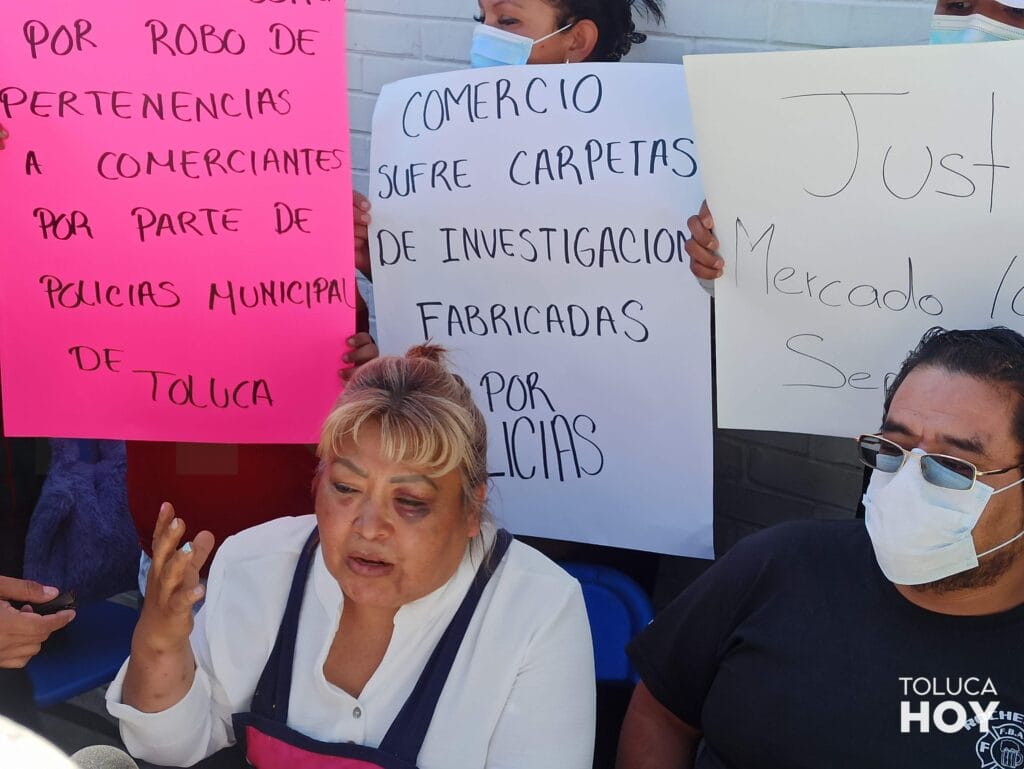 POR ROBO DE
PERTENENCIAS
A COMERCIANTES
POR PARTE DE
POLICIAS MUNICIPAL
DE TOLUCA
COMERCIO
SUFRE CARPETAS
DE INVESTIGACION
FABRICADAS
POR
LICIAS
Just
Mercado
Sep
TOLUCA
HOY
ROCHE
F.B.A
F